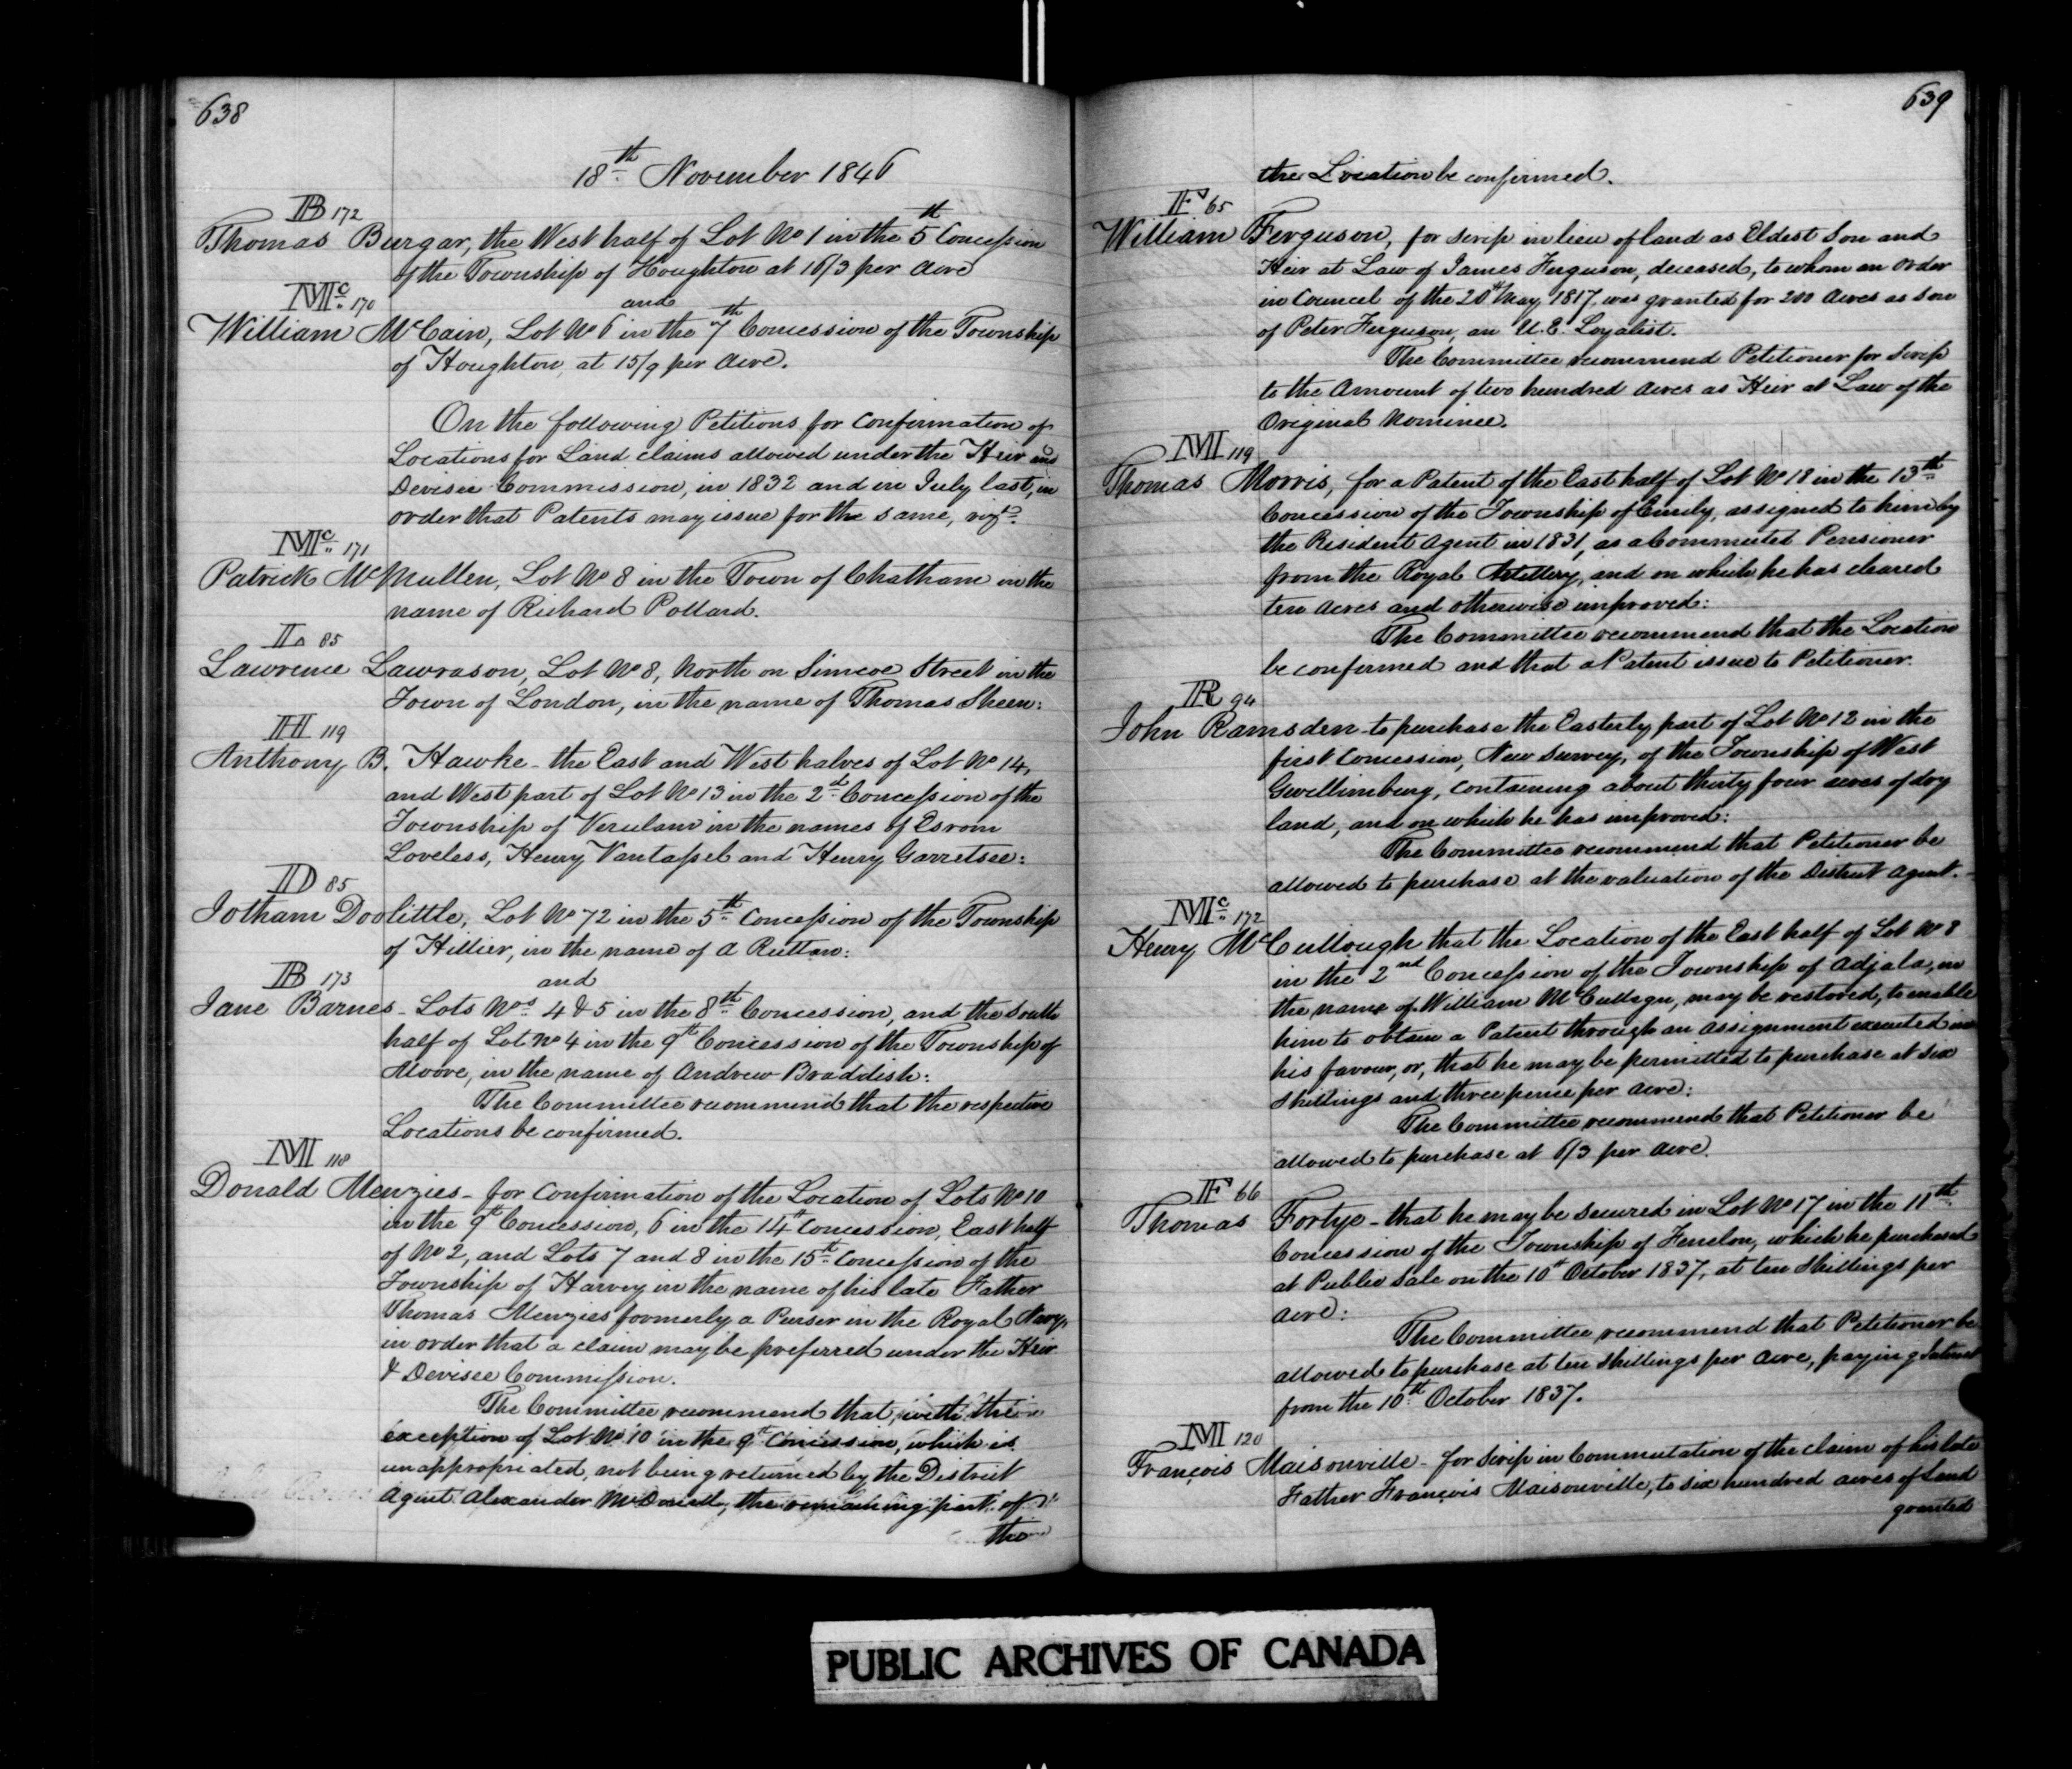 638
18th November 1846
B 172
Thomas Burgar, the West half of Lot No 1 in the 5th Concession
of the Township of Houghton at 16/3 per Acre
and
Mc 170
William McCain, Lot No 6 in the 7th Concession of the Township
of Houghton, at 15/9 per Acre.
On the following Petitions for Confirmation of
Locations for Land claims allowed under the Heir and
Devisee Commission, in 1832 and in July last, in
order that Patents may issue for the same, vizt.
Mc 171
Patrick McMullen, Lot No 8 in the Town of Chatham in the
name of Richard Pollard.
L 85
Lawrence Lawrason, Lot No 8, North on Simcoe Street in the
Town of London, in the name of Thomas Sheen:
H 119
Anthony B. Hawke - the East and West halves of Lot No 14,
and West part of Lot No 13 in the 2d Concession of the
Township of Verulam in the names of Esrom
Loveless, Henry Vantassel and Henry Garretsee:
D 85
Jotham Doolittle, Lot No 72 in the 5th Concession of the Township
of Hillier, in the name of A Ruttan:
and
B 173
Jane Barnes - Lots Nos 4 & 5 in the 8th Concession, and the South
half of Lot No 4 in the 9th Concession of the Township of
Moore, in the name of Andrew Braddish:
The Committee recommend that the respective
Locations be confirmed.
M 118
Donald Menzies - for Confirmation of the Location of Lots No 10
in the 9th Concession, 6 in the 14th Concession, East half
of No 2, and Lots 7 and 8 in the 15th Concession of the
Township of Harvey in the name of his late Father
Thomas Menzies formerly a Purser in the Royal Navy,
in order that a claim may be preferred under the Heir
& Devisee Commission.
The Committee recommend that, with the
exception of Lot No 10 in the 9th Concession, which is
unappropriated, not being returned by the District
Agent Alexander McDonell, the remaining part of
the
639
the Location be confirmed.
F 65
William Ferguson, for scrip in lieu of land as Eldest Son and
Heir at Law of James Ferguson, deceased, to whom an Order
in Council of the 20th May 1817, was granted for 200 Acres as son
of Peter Ferguson, an U.E. Loyalist.
The Committee recommend Petitioner for Scrip
to the Amount of two hundred Acres as Heir at Law of the
Original Nominee.
M 119
Thomas Morris, for a Patent of the East half of Lot No 18 in the 13th
Concession of the Township of Emily, assigned to him by
the Resident Agent in 1831, as a Commuted Pensioner
from the Royal Artillery, and on which he has cleared
ten Acres and otherwise improved:
The Committee recommend that the Location
be confirmed and that a Patent issue to Petitioner.
R 94
John Ramsden - to purchase the Easterly part of Lot No 12 in the
first Concession, New Survey, of the Township of West
Gwillimburg, containing about thirty four acres of dry
land, and on which he has improved:
The Committee recommend that Petitioner be
allowed to purchase at the valuation of the District Agent. -
Mc 172
Henry McCullough that the Location of the East half of Lot No 8
in the 2nd Concession of the Township of Adjala, in
the name of William McCullogn, may be restored, to enable
him to obtain a Patent through an assignment executed in
his favour, or, that he may be permitted to purchase at six
shillings and three pence per Acre:
The Committee recommend that Petitioner be
allowed to purchase at 6/3 per Acre.
F 66
Thomas Fortye - that he may be secured in Lot No 17 in the 11th
Concession of the Township of Fenelon, which he purchased
at Public Sale on the 10th October 1837, at ten Shillings per
Acre:
The Committee recommend that Petitioner be
allowed to purchase at ten Shillings per Acre, paying Interest
from the 10th October 1837.
M 120
François Maisonville - for scrip in Commutation of the claim of his late
Father François Maisonville, to six hundred acres of Land
granted
PUBLIC ARCHIVES OF CANADA